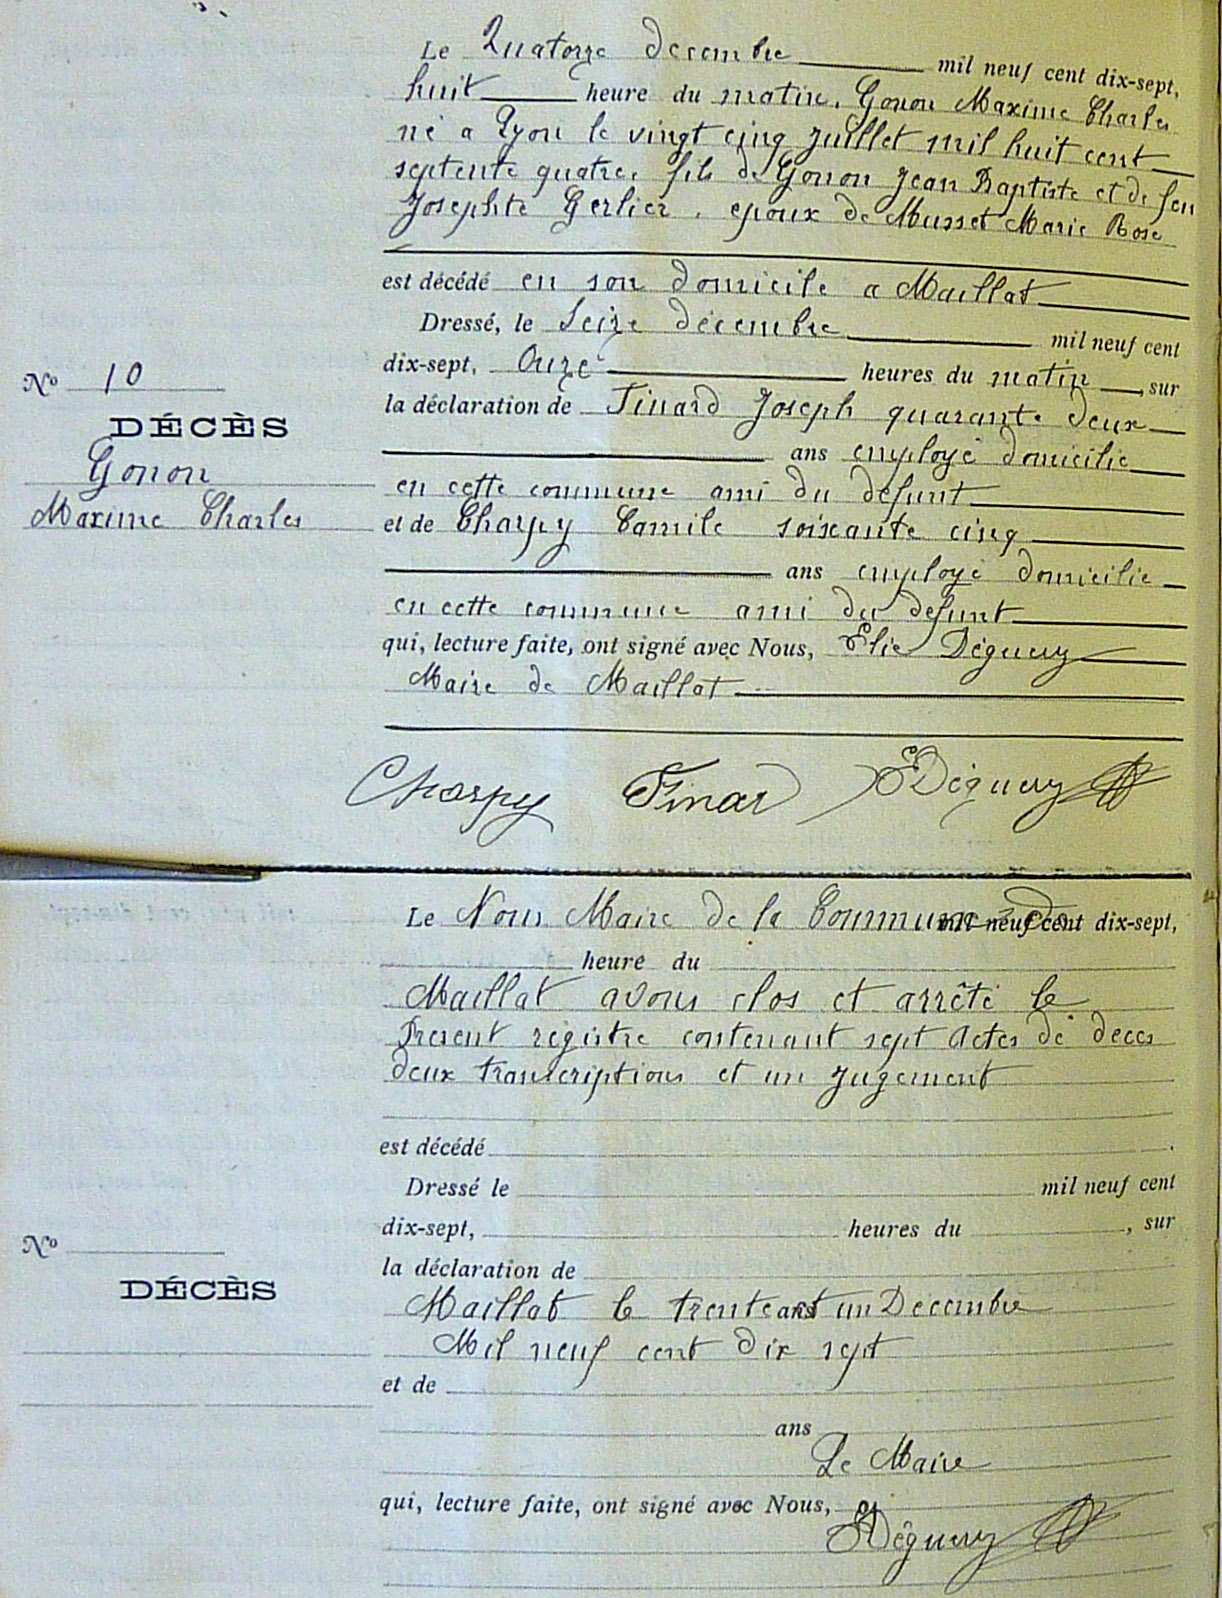 Le Quatorze decembre mil neuf cent dix-sept,
huit heure du matin. Gonon Maxime Charles
né a Lyon le vingt cinq Juillet mil huit cent
septente quatre, fils de Gonon Jean Baptiste et de feu
Josephte Gerlier. epoux de Musset Marie Rose
est décédé en son domicile a Maillat
Dressé, le Seize décembre mil neuf cent
dix-sept, Onze heures du matin, sur
No 10
la déclaration de Tinard Joseph quarante deux
DÉCÈS
ans employé domicilié
Gonon
en cette commune ami du défunt
Maxime Charles
et de Charpy Camile soixante cinq
ans employé domicilié
en cette commune ami du defunt
qui, lecture faite, ont signé avec Nous, Elie Déguery
Maire de Maillat
Charpy Tinard EDéguery
Le Nous Maire de la Commune de mil neuf cent dix-sept,
heure du
Maillat avons clos et arrêté le
Present registre contenant sept Actes de deces
deux transcriptions et un Jugement
est décédé
Dressé le mil neuf cent
dix-sept, heures du , sur
No
la déclaration de
DÉCÈS
Maillat le trente et un Decembre
ans
Mil neuf cent dix sept
et de
ans
Le Maire
qui, lecture faite, ont signé avec Nous,
EDéguery